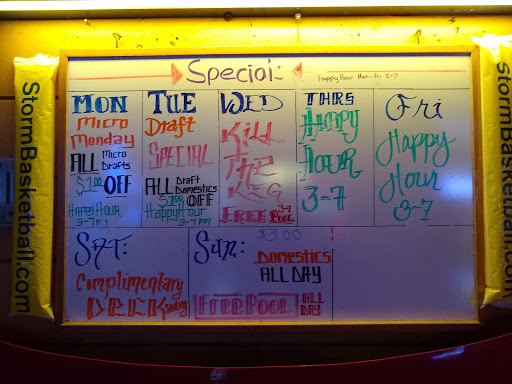 Special:
Happy Hour Mon-Fri 3-7
StormBasketball.com
MON
Micro
Monday
ALL Micro Drafts
$1.00 OFF
Happy Hour
3-7 PM
TUE
Draft
SPECIAL
ALL Draft Domestics
$1.00 OFF
Happy Hour
3-7 PM
WED
Kill
The
KEG
FREE POOL 3-7
THRS
HAPPY
HOUR
3-7
Fri
Happy
Hour
3-7
SAT:
Complimentary
DECK
Sun: $3.00
DOMESTICS
ALL DAY
FREE POOL ALL DAY
StormBasketball.com